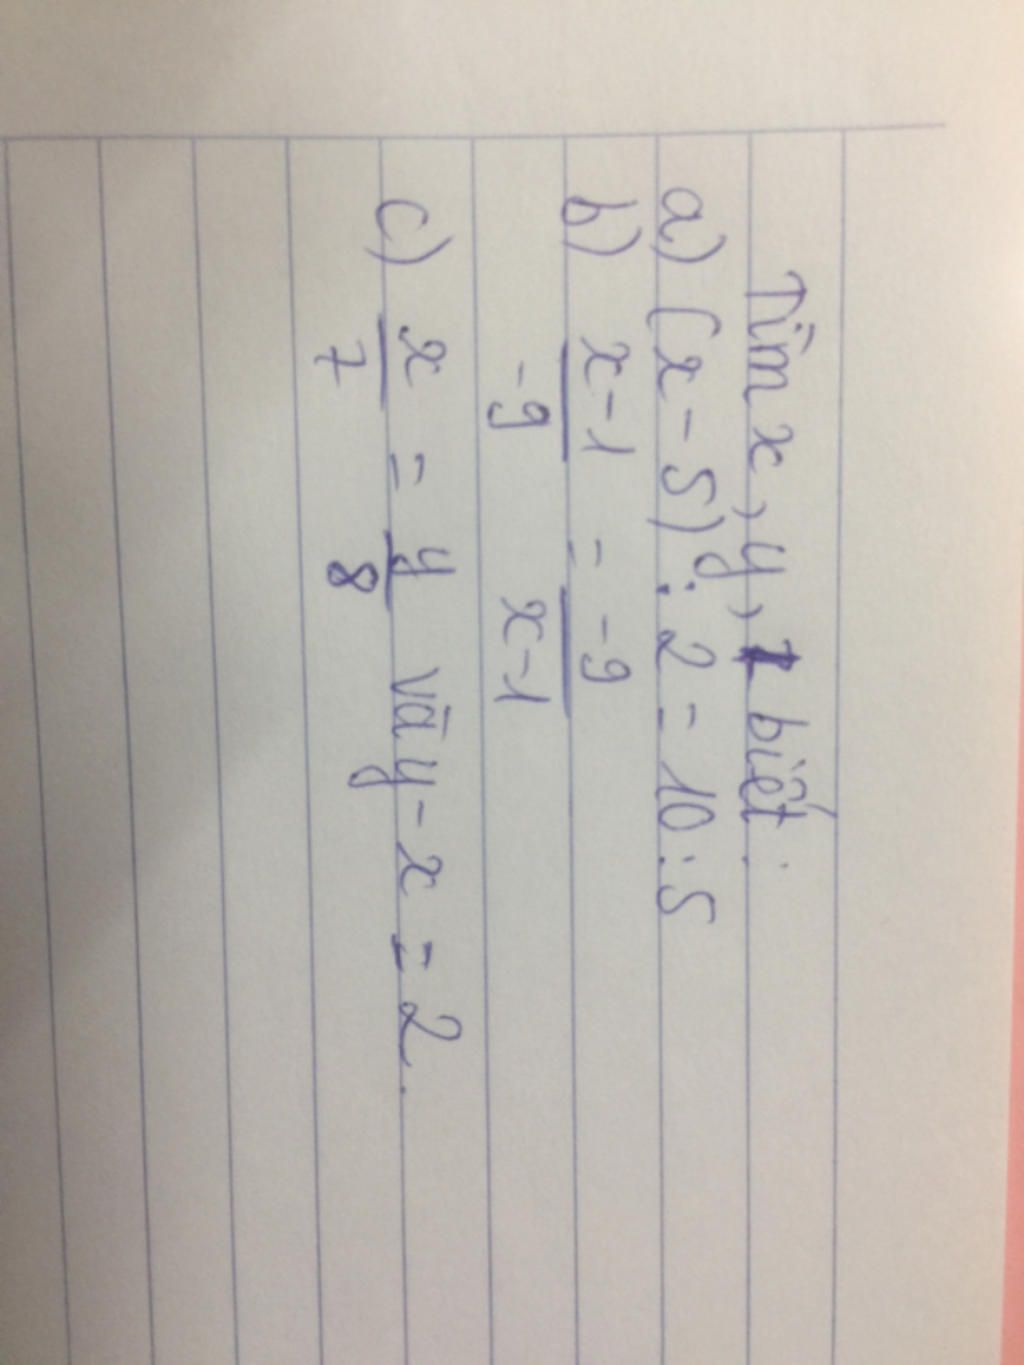 Tìm x, y, biết:
a) (x-5) : 2 = 10 : 5
b) x-1 / -9 = -9 / x-1
c) x / 7 = y / 8 và y - x = 2.